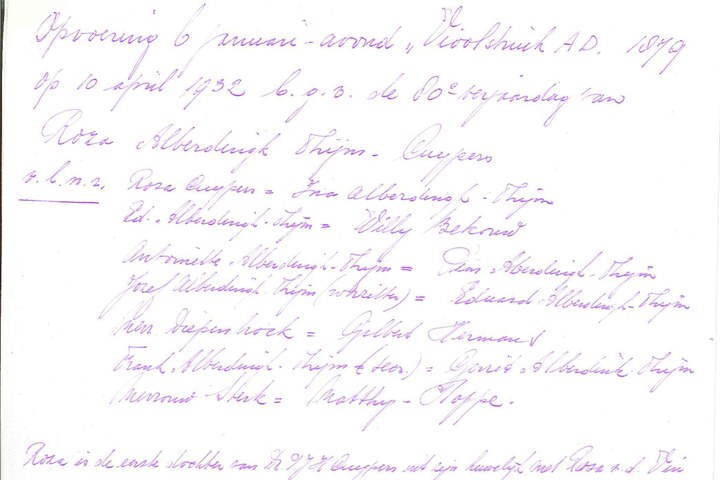 Opvoering 6 januari-avond „Vioolstruik A.D. 1879
op 10 april 1932 b.g.v. de 80e verjaardag van
Roza Alberdingk Thijm - Cuypers
v.l.n.r. Rosa Cuypers = Ina Alberdingk-Thijm
Ed. Alberdingk-Thijm = Willy Bekouw
Antoinette Alberdingk-Thijm = Alberdingk-Thijm
Jozef Alberdingk Thijm (schrijver) = Eduard Alberdingk-Thijm
Diepenbrock = Gilbert Hermans
Frank Alberdingk-Thijm = Gerrit Alberdink-Thijm
Mevrouw Sterk = Matthy - Hoppe.
Roza is de eerste dochter van Dr. P J H Cuypers uit zijn huwelijk met Rosa v.d. Vin